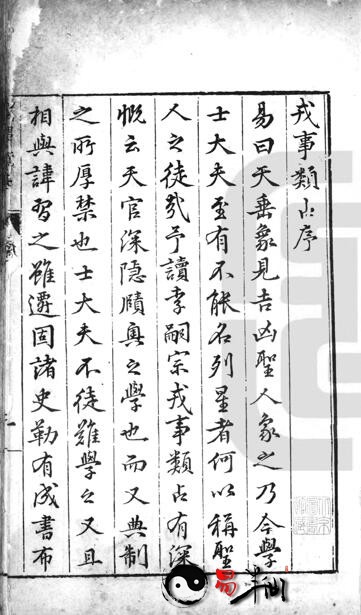 戎事類占序
易曰天垂象見吉凶聖人象之乃今學
士大夫至有不能名列星者何以稱聖
人之徒哉予讀李嗣宗戎事類占有深
慨云天官深隱賾奧之學也而又典制
之所厚禁也士大夫不徒難學之又且
相與諱習之雖遷固諸史勒有成書布
易